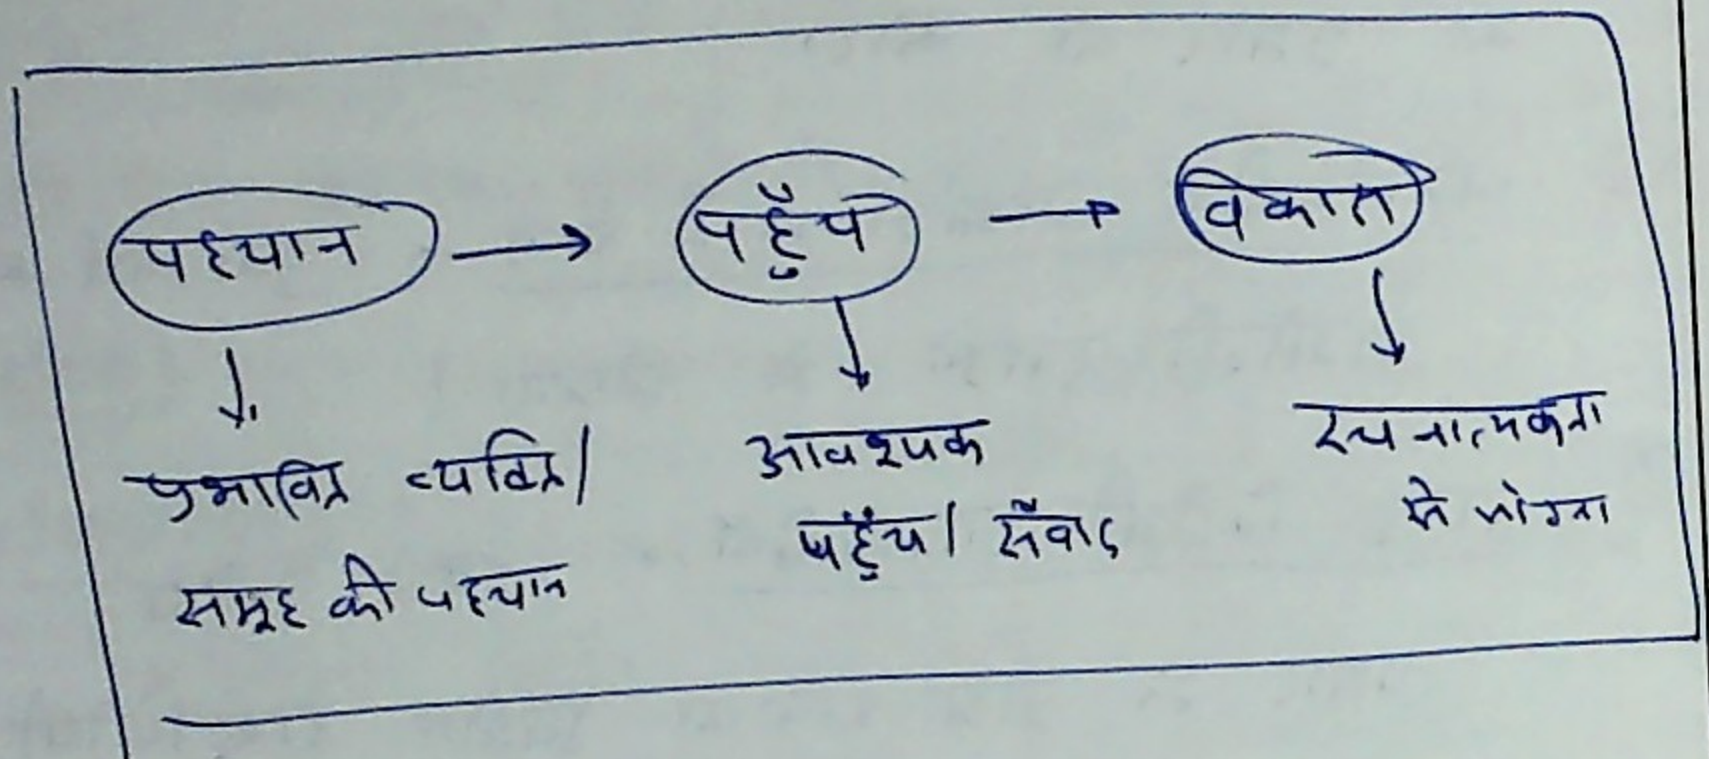 पहचान → पहुँच → विकास
प्रभावित व्यक्ति/
समूह की पहचान
आवश्यक
पहुँच/ संवाद
रचनात्मकता
से